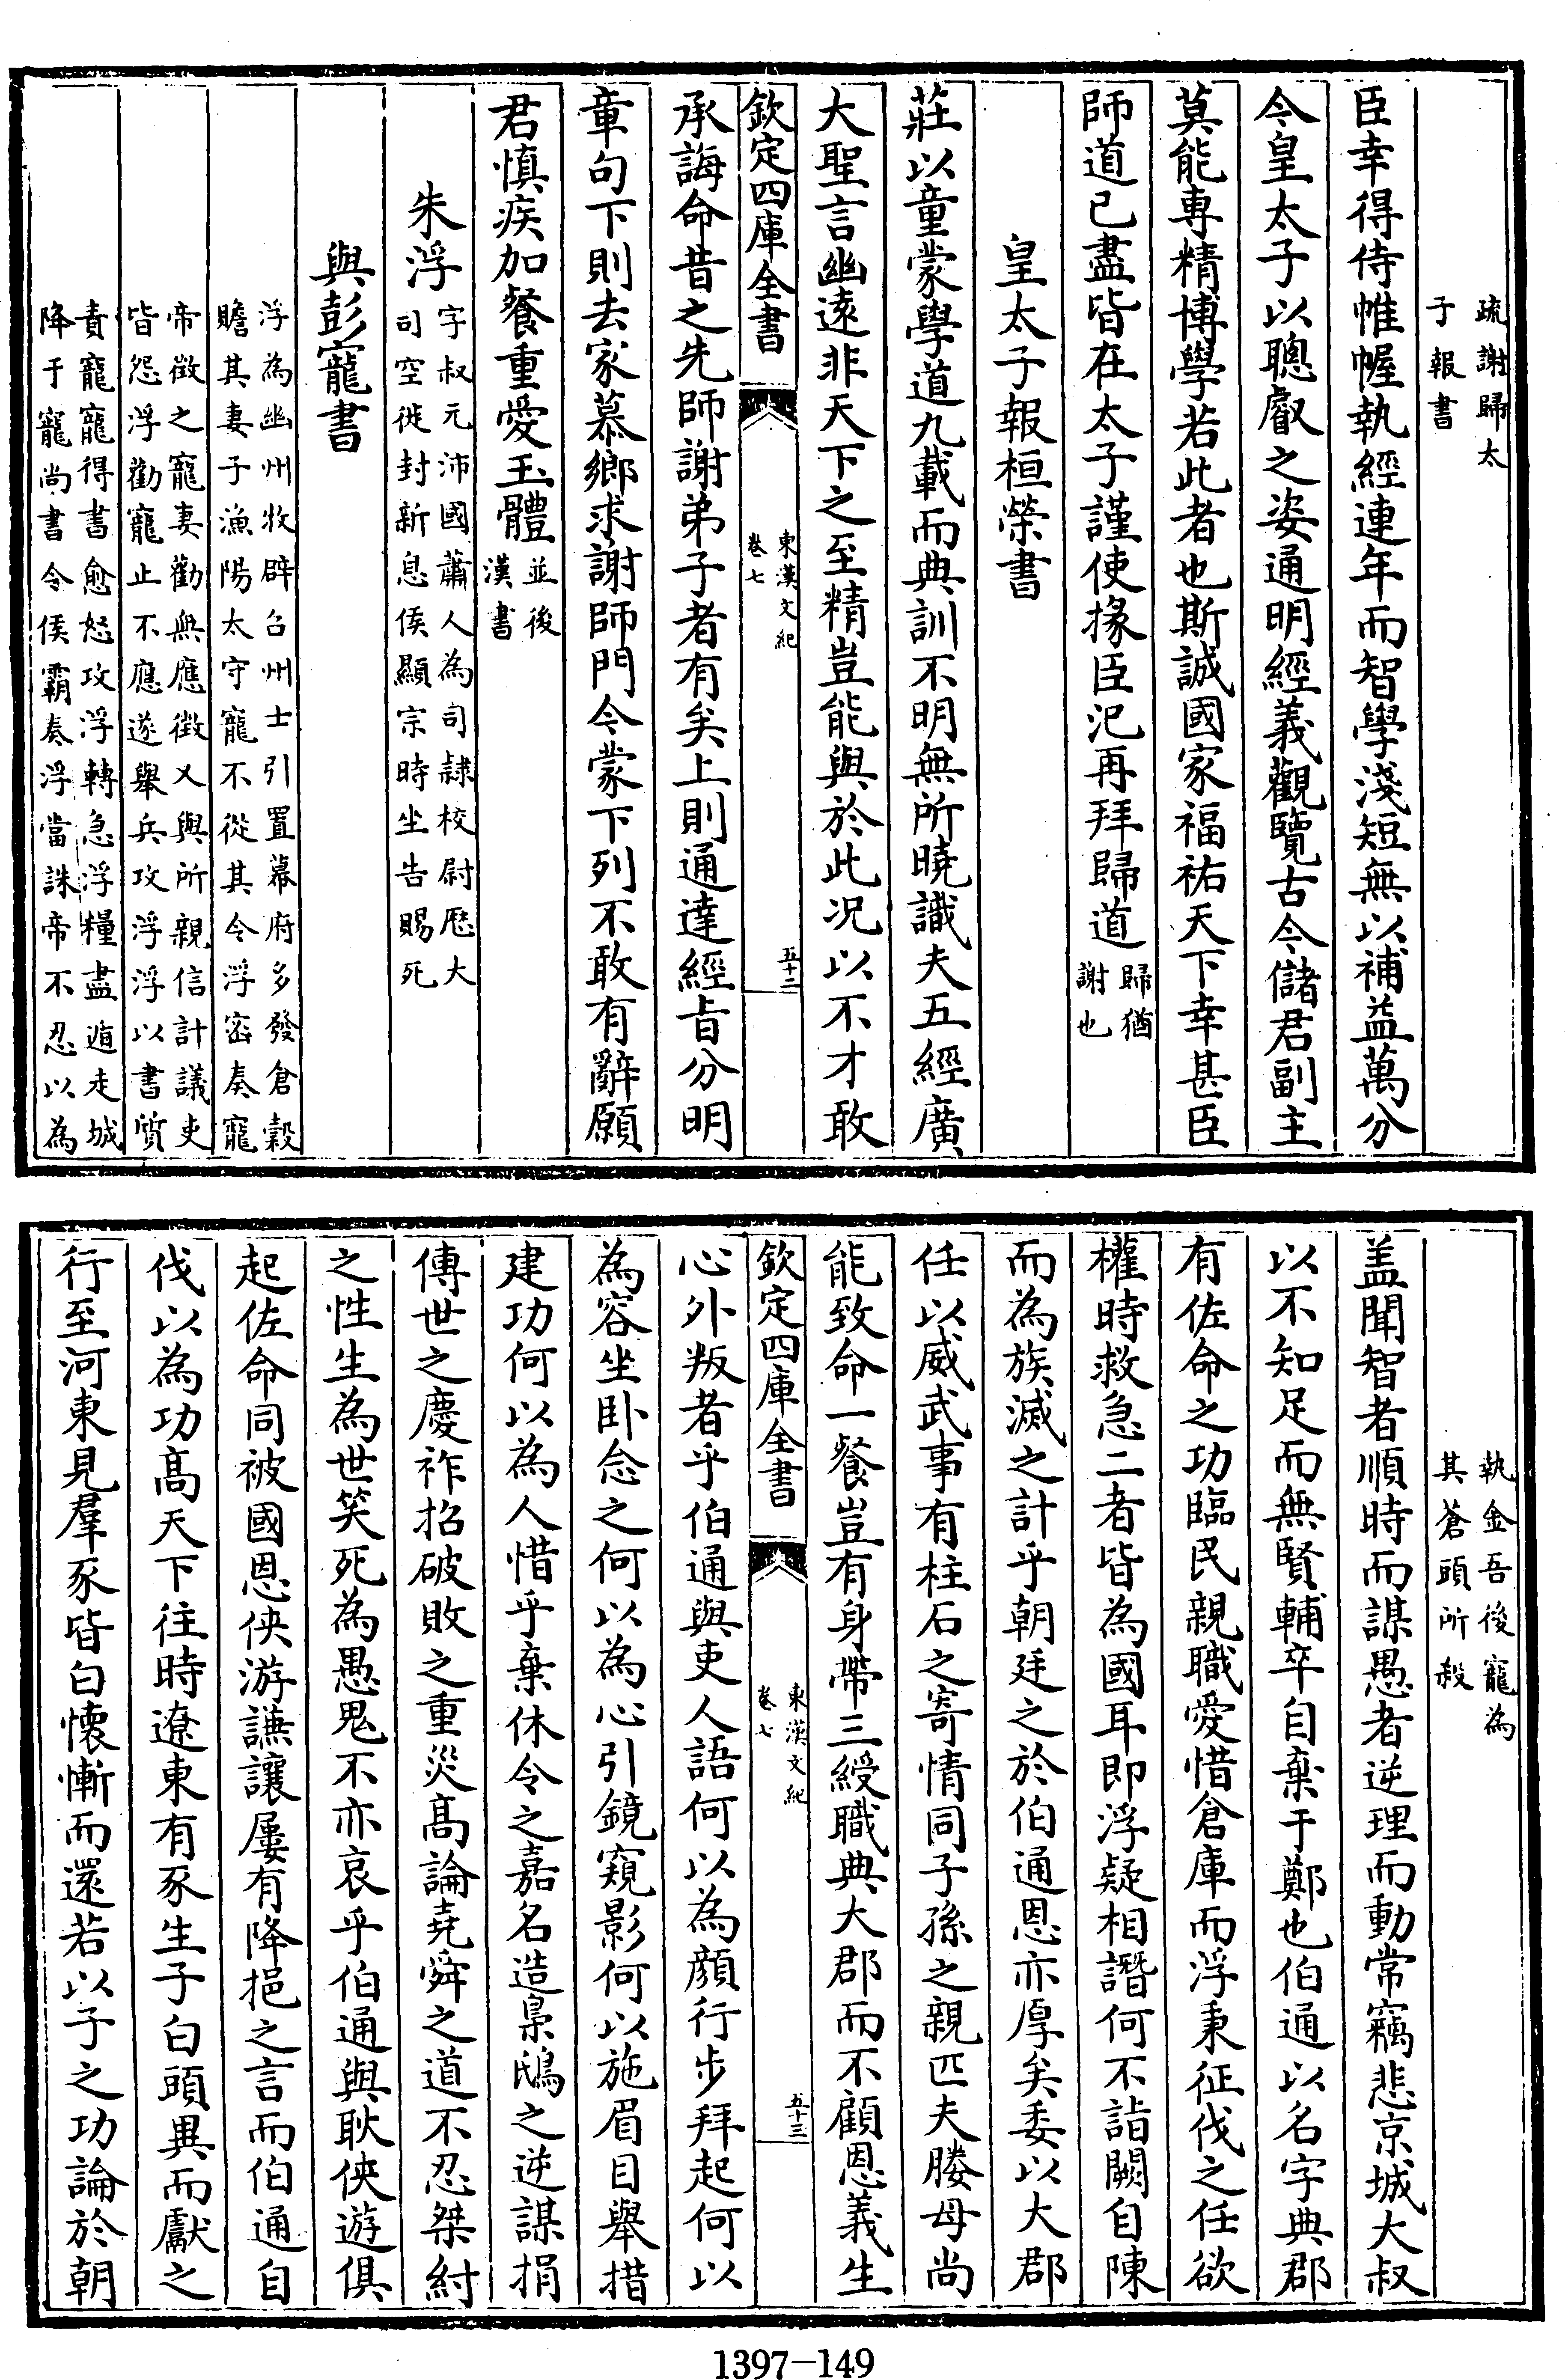 疏謝歸太
子報書
臣幸得侍帷幄執經連年而智學淺短無以補益萬分
今皇太子以聰叡之姿通明經義觀覽古今儲君副主
莫能專精博學若此者也斯誠國家福祐天下幸甚臣
師道已盡皆在太子謹使掾臣汜再拜歸道歸猶
謝也
皇太子報桓榮書
莊以童蒙學道九載而典訓不明無所曉識夫五經廣
大聖言幽遠非天下之至精豈能與於此况以不才敢
欽定四庫全書
東漢文紀
卷七
五十二
承誨命昔之先師謝弟子者有矣上則通達經旨分明
章句下則去家慕鄉求謝師門今蒙下列不敢有辭願
君慎疾加餐重愛玉體並後
漢書
朱浮字叔元沛國蕭人為司隸校尉歴大
司空徙封新息侯顯宗時坐告賜死
與彭寵書
浮為幽州牧辟召州士引置幕府多發倉穀
贍其妻子漁陽太守寵不從其令浮宻奏寵
帝徴之寵妻勸無應徴又與所親信計議吏
皆怨浮勸寵止不應遂舉兵攻浮浮以書質
責寵寵得書愈怒攻浮轉急浮糧盡遁走城
降于寵尚書令侯霸奏浮當誅帝不忍以為
執金吾後寵為
其蒼頭所殺
盖聞智者順時而謀愚者逆理而動常竊悲京城大叔
以不知足而無賢輔卒自棄于鄭也伯通以名字典郡
有佐命之功臨民親職愛惜倉庫而浮秉征伐之任欲
權時救急二者皆為國耳即浮疑相譖何不詣闕自陳
而為族滅之計乎朝廷之於伯通恩亦厚矣委以大郡
任以威武事有柱石之寄情同子孫之親匹夫媵母尚
能致命一餐豈有身帶三綬職典大郡而不顧恩義生
欽定四庫全書
東漢文紀
卷七
五十三
心外叛者乎伯通與吏人語何以為顔行步拜起何以
為容坐卧念之何以為心引鏡窺影何以施眉目舉措
建功何以為人惜乎棄休令之嘉名造梟鴟之逆謀捐
傳世之慶祚招破敗之重災髙論堯舜之道不忍桀紂
之性生為世笑死為愚鬼不亦哀乎伯通與耿俠遊俱
起佐命同被國恩俠游謙讓屢有降挹之言而伯通自
伐以為功髙天下往時遼東有豕生子白頭異而獻之
行至河東見羣豕皆白懐慚而還若以子之功論於朝
1397-149